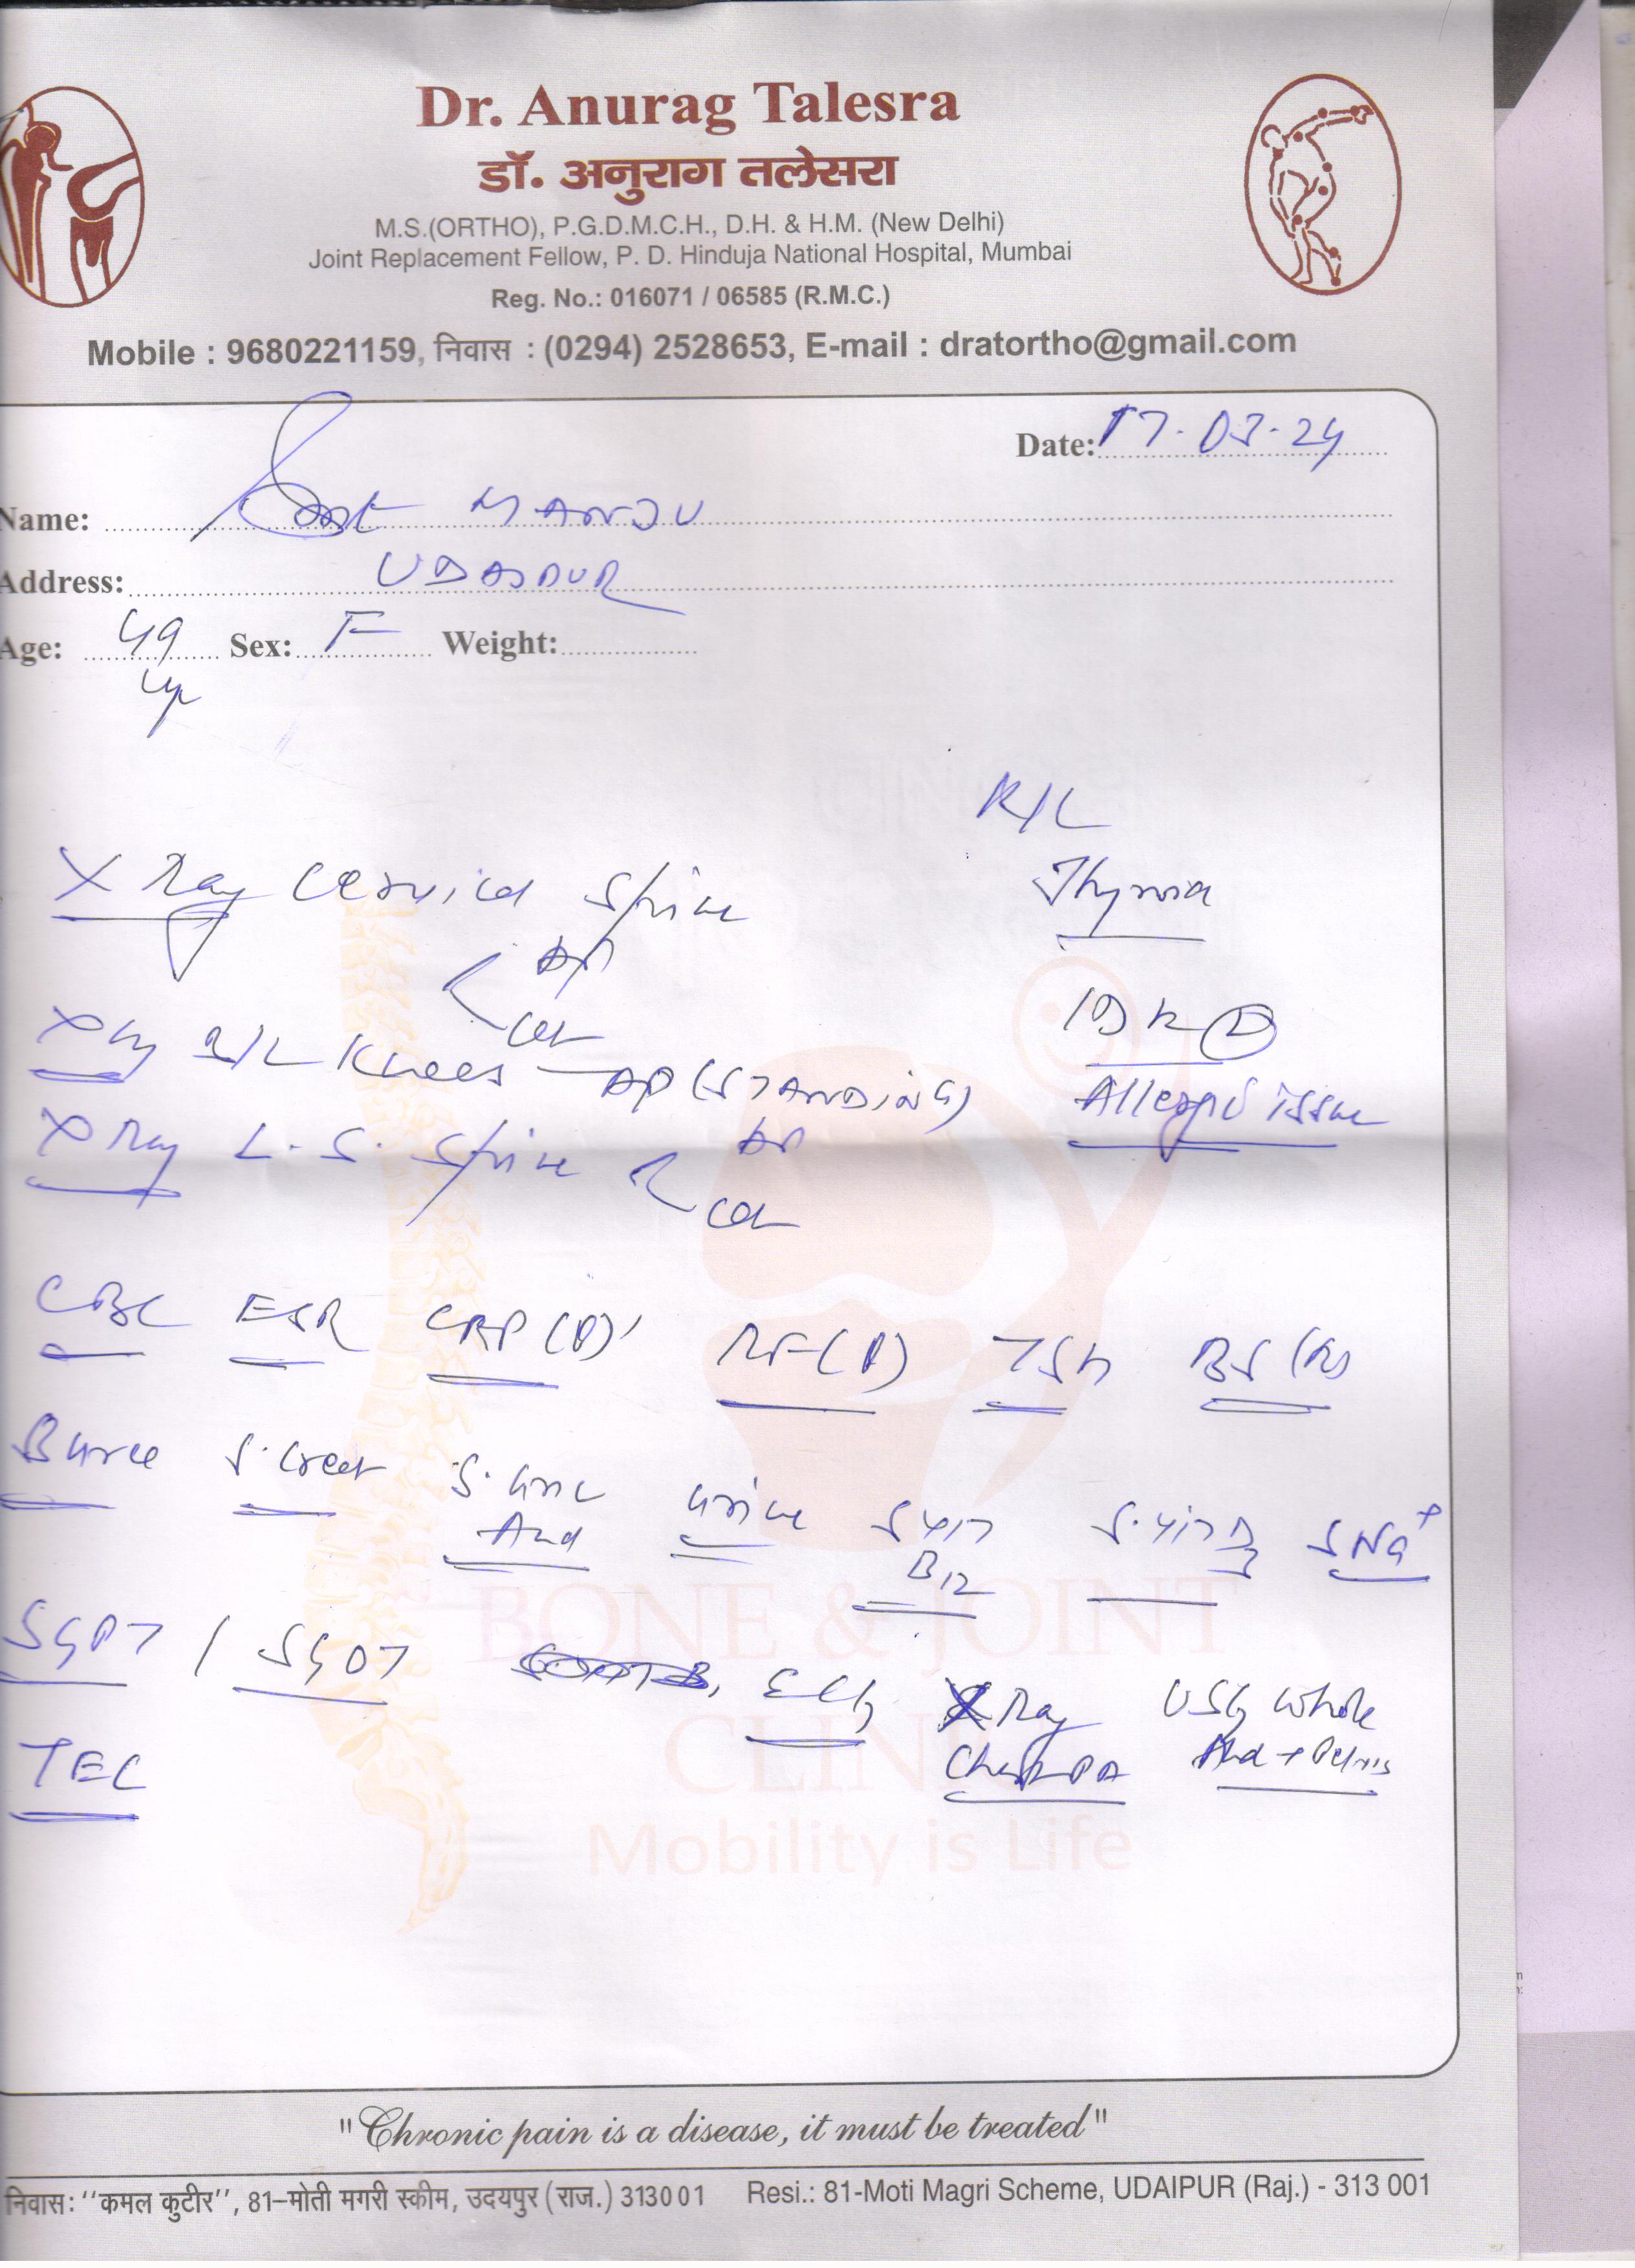 Dr. Anurag Talesra
डॉ. अनुराग तलेसरा
M.S.(ORTHO), P.G.D.M.C.H., D.H. & H.M. (New Delhi)
Joint Replacement Fellow, P. D. Hinduja National Hospital, Mumbai
Reg. No.: 016071 / 06585 (R.M.C.)
Mobile : 9680221159, निवास : (0294) 2528653, E-mail : dratortho@gmail.com
Date: 17.03.24
Name: MANJU
Address: UDAIPUR
Age: 49 Sex: F Weight:
yr
K/C
X Ray Cervical Spine
AP
Lat
X Ray B/L Knees AP (STANDING)
Allergic issue
X Ray L.S. Spine
AP
Lat
CBC ESR CRP (Q) RF (Q) TSH BS (R)
B urea S. Creat S. Uric Urine S Vit S. Vit D3 S Na+
Acid B12
SGPT / SGOT ECG X Ray USG Whole
Chest PA Abd + Pelvis
TEC
BONE & JOINT
CLINIC
Mobility is Life
"Chronic pain is a disease, it must be treated"
निवास: ''कमल कुटीर'', 81-मोती मगरी स्कीम, उदयपुर (राज.) 313001 Resi.: 81-Moti Magri Scheme, UDAIPUR (Raj.) - 313 001